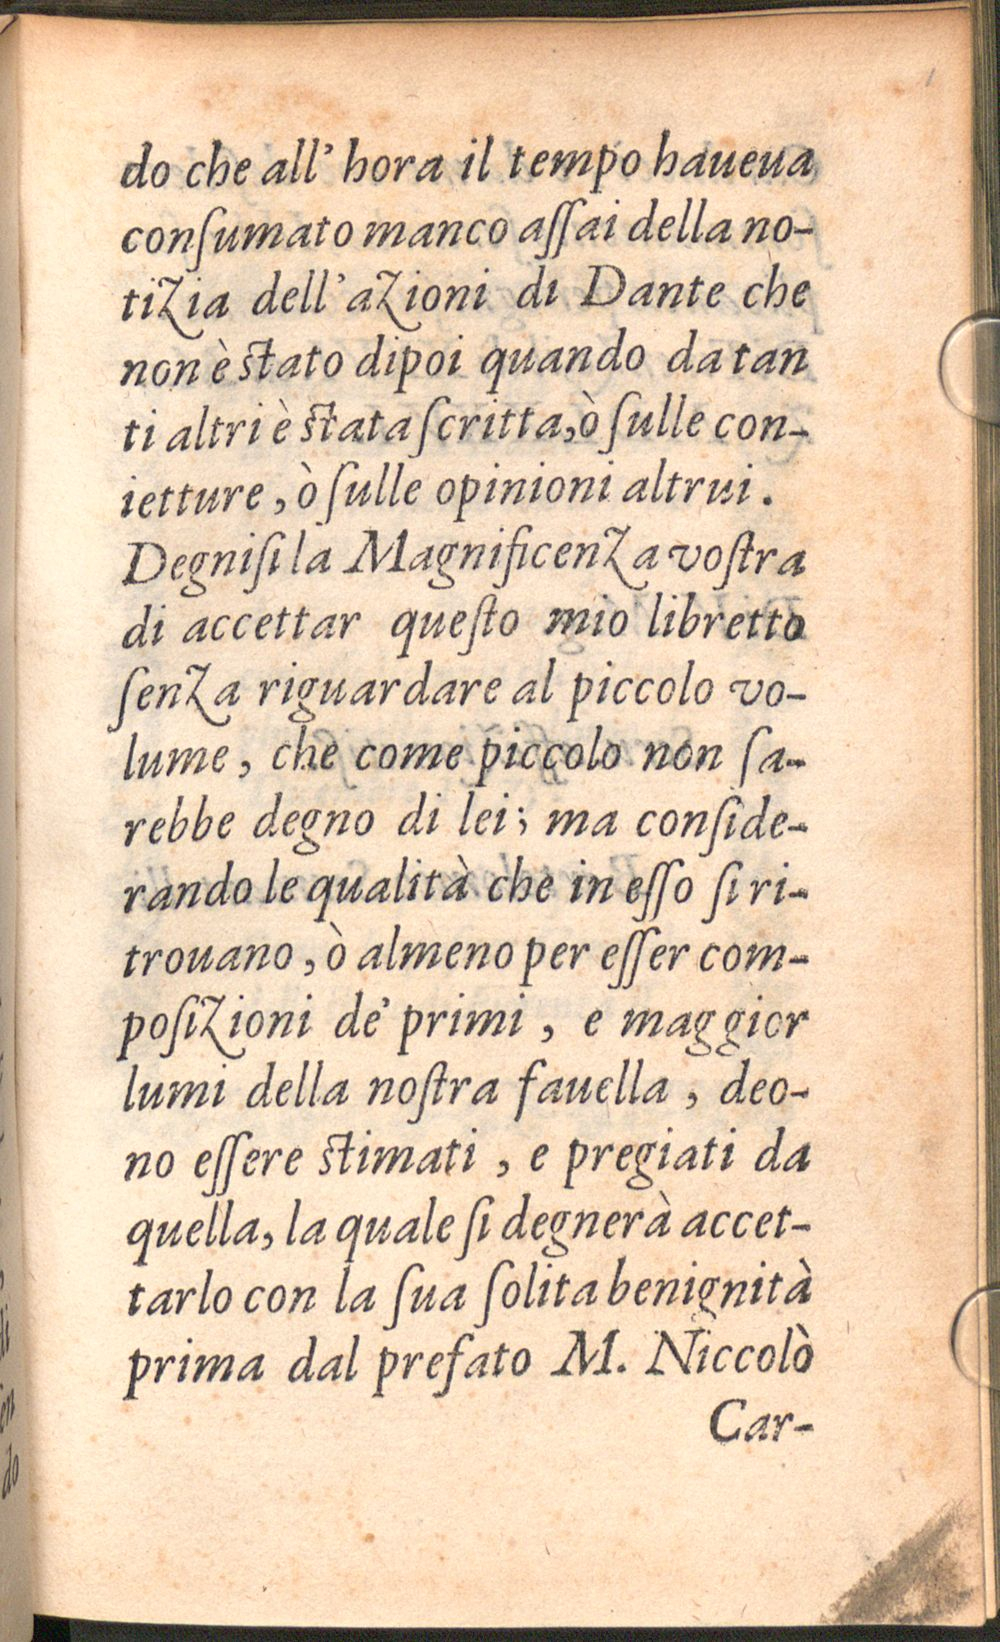 do che all' hora il tempo haueua
conſumato manco aſſai della no-
tizia dell'azioni di Dante che
non è ſtato dipoi quando da tan
ti altri è ſtata ſcritta, ò ſulle con-
ietture, ò ſulle opinioni altrui.
Degniſi la Magnificenza voſtra
di accettar queſto mio libretto
ſenza riguardare al piccolo vo-
lume, che come piccolo non ſa-
rebbe degno di lei; ma conſide-
rando le qualità che in eſſo ſi ri-
trouano, ò almeno per eſſer com-
poſizioni de' primi, e maggior
lumi della noſtra fauella, deo-
no eſſere ſtimati, e pregiati da
quella, la quale ſi degnerà accet-
tarlo con la ſua ſolita benignità
prima dal prefato M. Niccolò
Car-